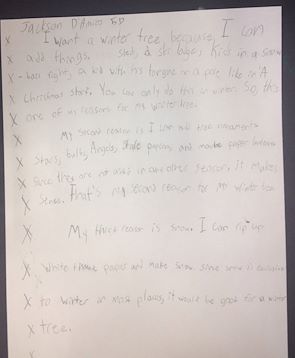 Jackson 5D
X I want a winter tree, because, I can
X add things. sled, a ski lodge, kids in a snow
X -ball fight, a kid with his tongue on a pole like in A
X Christmas story. You can only do this in winter. So, this
X one of my reasons for my winter tree.
X My second reason is I can add tree ornaments
X Stars, balls, Angels, paper
X Since they are not used in any other season, it makes
X Sense. That's my second reason for my winter tree
X My third reason is snow. I can rip up
X White paper and make snow. Since snow is exclusive
X to winter in most places, it would be good for a winter
X tree.